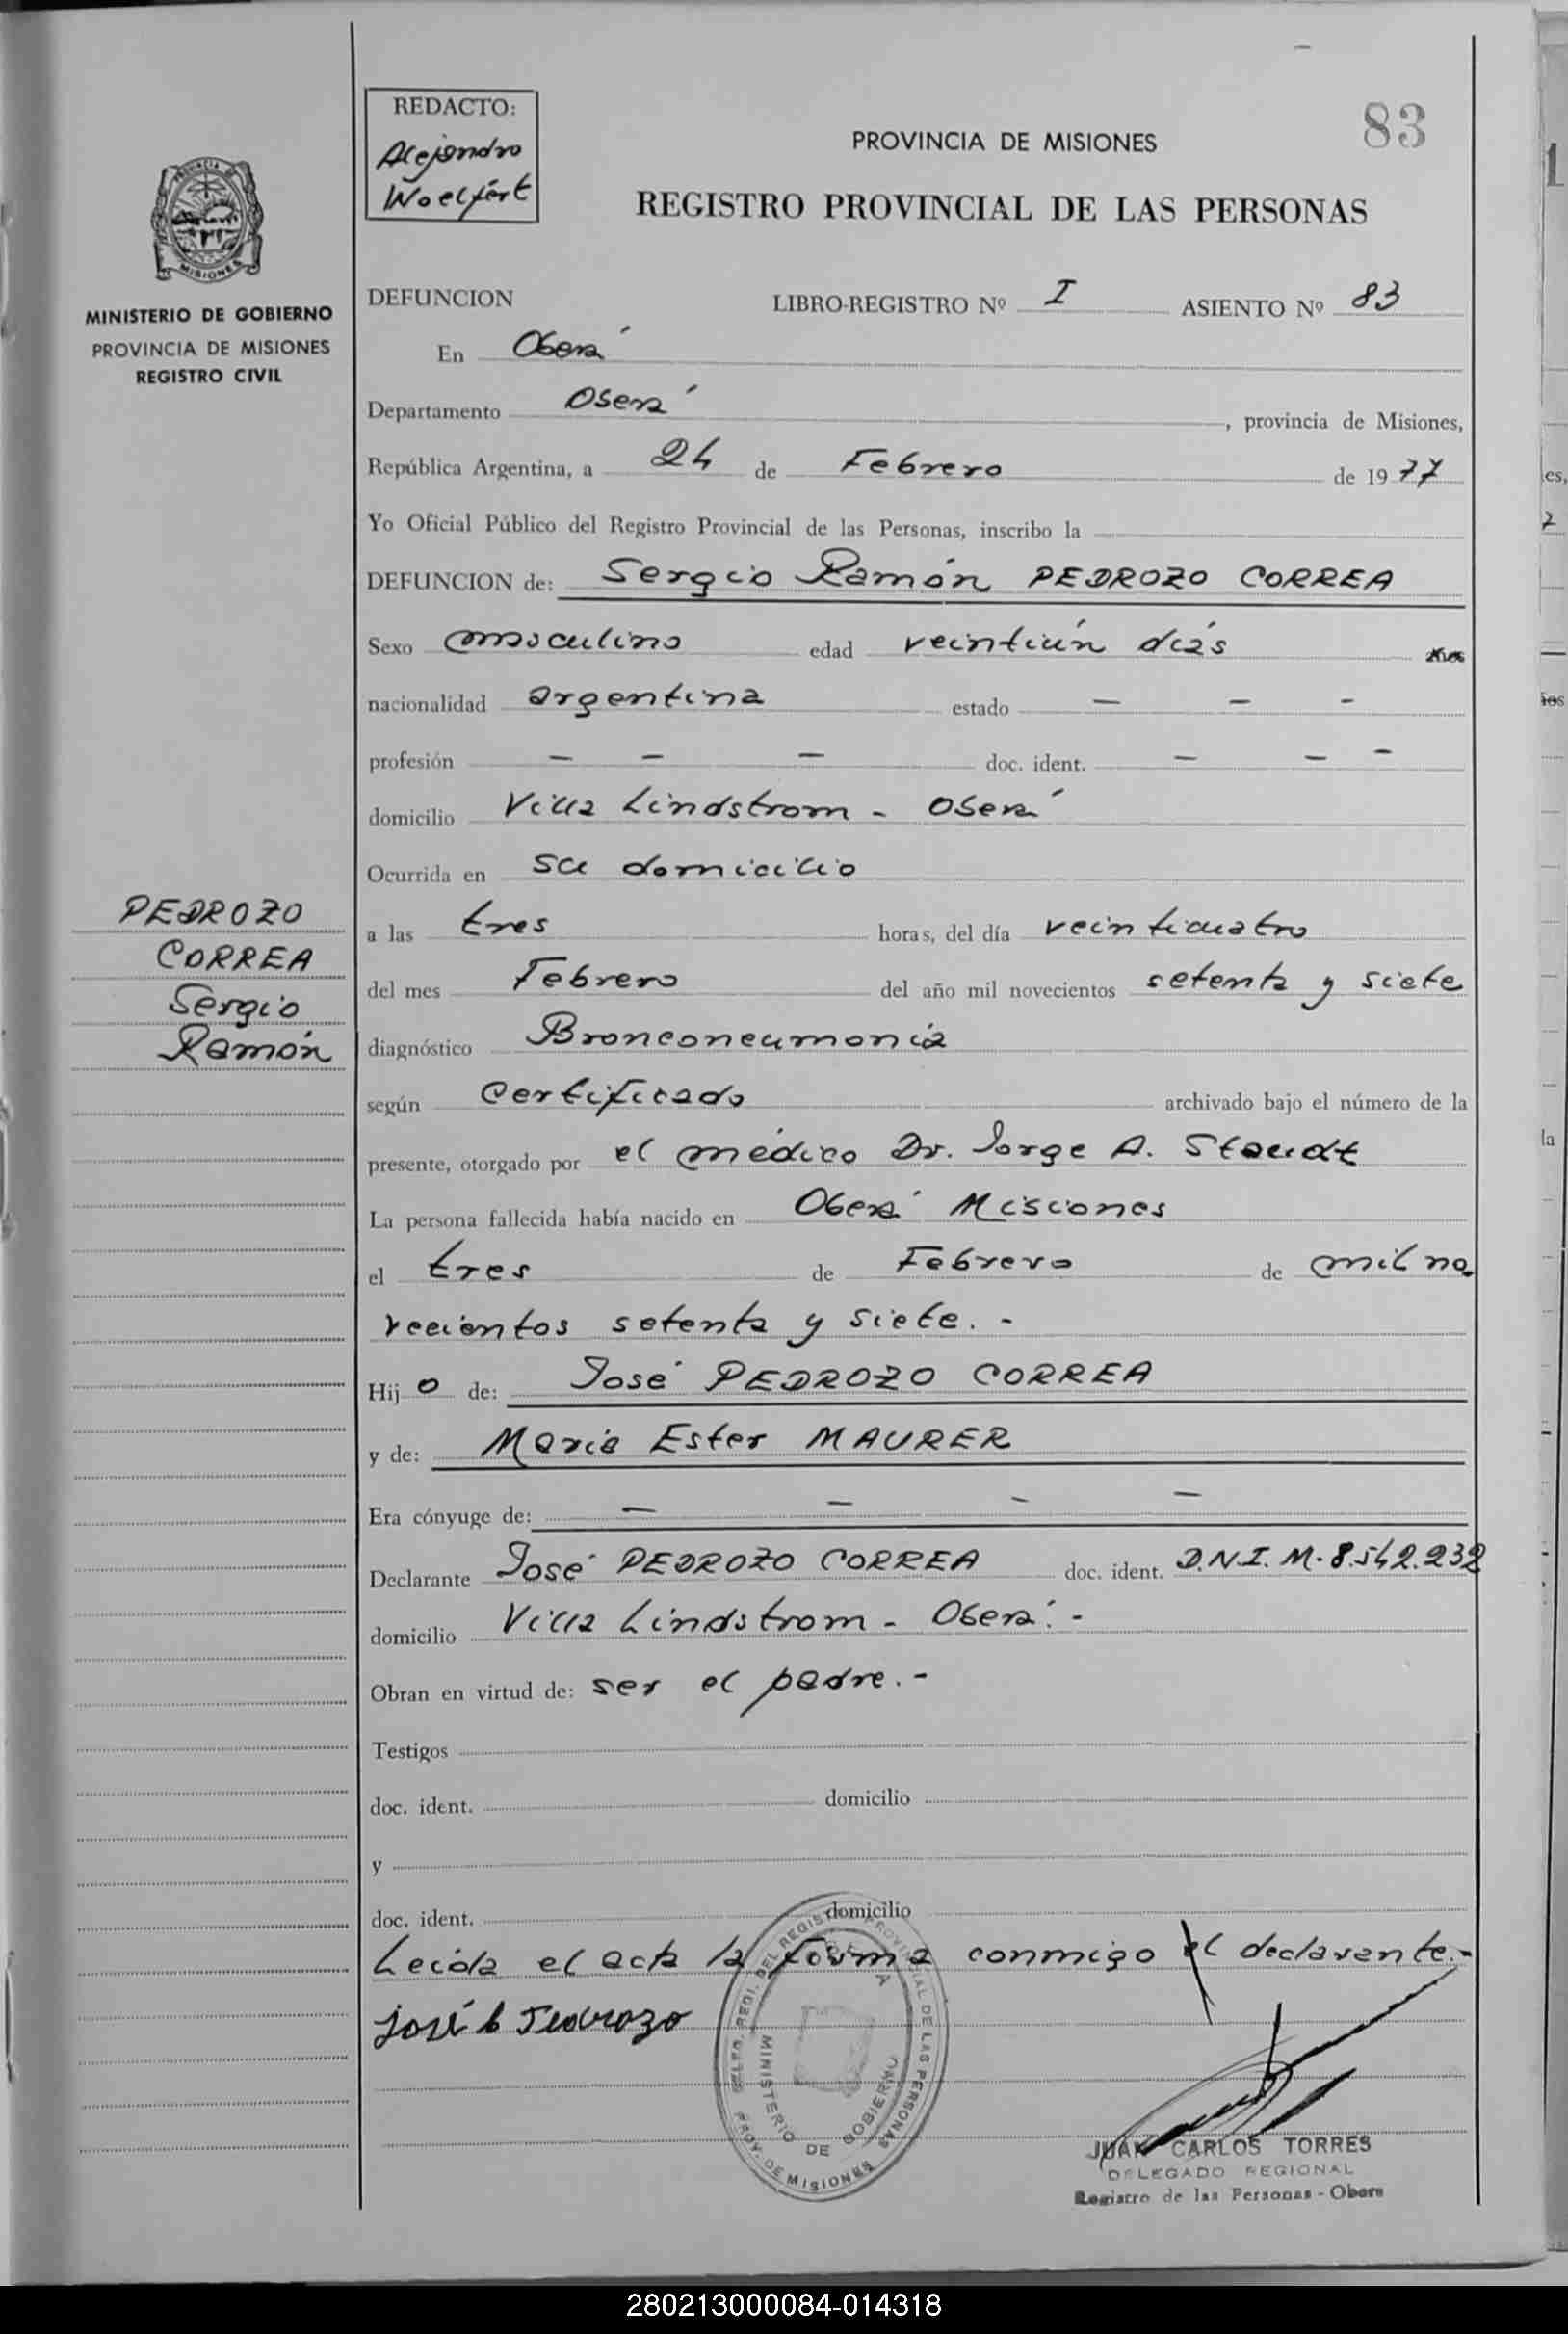 REDACTO:
Alejandro
Woelfert
83
PROVINCIA DE MISIONES
REGISTRO PROVINCIAL DE LAS PERSONAS
MISIONES
MINISTERIO DE GOBIERNO
PROVINCIA DE MISIONES
REGISTRO CIVIL
DEFUNCION LIBRO-REGISTRO Nº I ASIENTO Nº 83
En Oberá
Departamento Oberá, provincia de Misiones,
República Argentina, a 24 de Febrero de 1977
Yo Oficial Público del Registro Provincial de las Personas, inscribo la
DEFUNCION de: Sergio Ramón PEDROZO CORREA
Sexo masculino edad veintiún días
nacionalidad argentina estado - - -
profesión - - - doc. ident. - - -
domicilio Villa Lindstrom - Oberá
Ocurrida en su domicilio
a las tres horas, del día veinticuatro
del mes Febrero del año mil novecientos setenta y siete
diagnóstico Bronconeumonía
según certificado archivado bajo el número de la
presente, otorgado por el médico Dr. Jorge A. Staudt
La persona fallecida había nacido en Oberá Misiones
el tres de Febrero de mil no
vecientos setenta y siete. -
Hijo de: José PEDROZO CORREA
y de: María Ester MAURER
Era cónyuge de: - - - -
Declarante José PEDROZO CORREA doc. ident. D.N.I. M. 8.542.232
domicilio Villa Lindstrom - Oberá. -
Obran en virtud de: ser el padre. -
Testigos
doc. ident. domicilio
y
doc. ident. domicilio
Leída el acta la firma conmigo el declarante. -
José Pedrozo
PEDROZO
CORREA
Sergio
Ramón
DEL REGISTRO PROVINCIAL DE LAS PERSONAS
PROV. DE MISIONES
MINISTERIO DE GOBIERNO
JUAN CARLOS TORRES
DELEGADO REGIONAL
Registro de las Personas - Obera
280213000084-014318